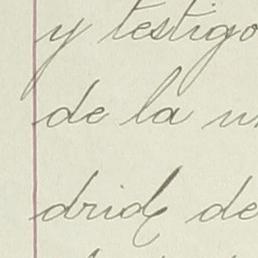 y testigo
de la
drid de